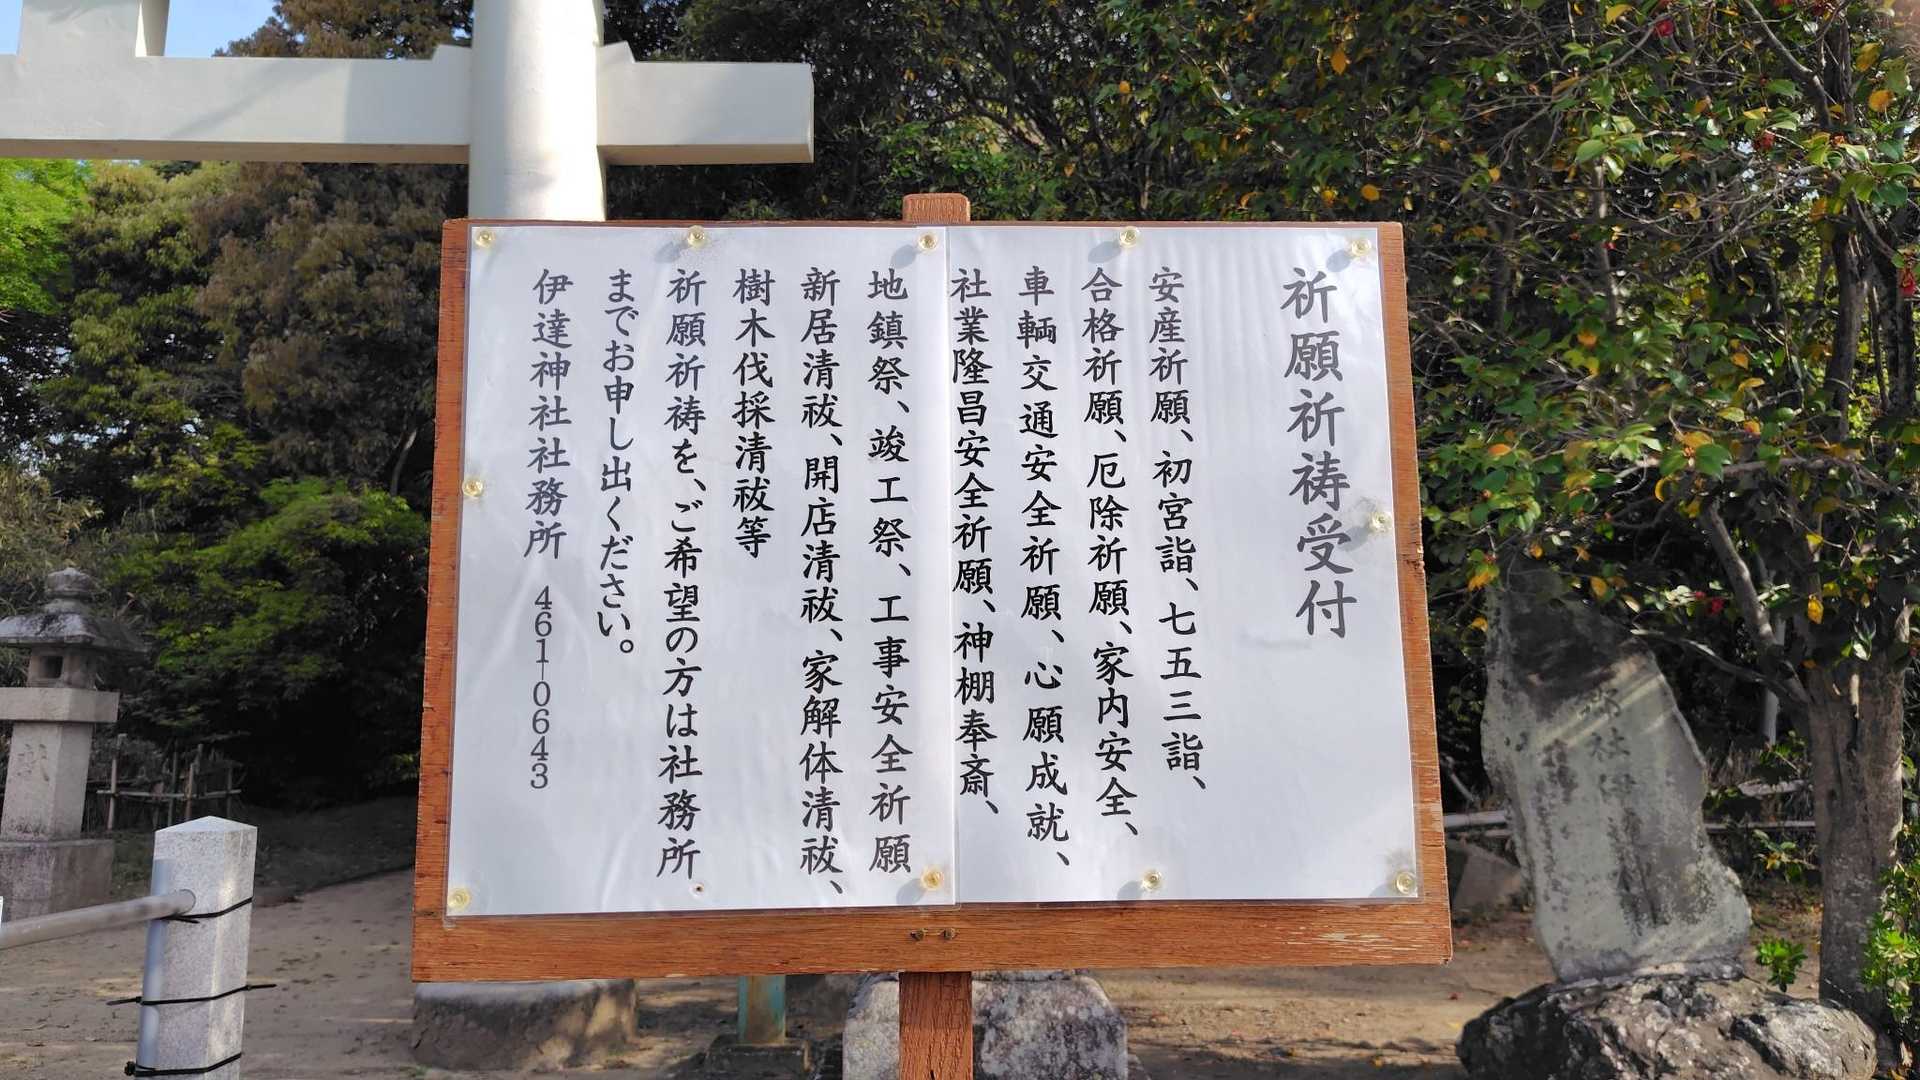 祈願祈祷受付
安産祈願、初宮詣、七五三詣、
合格祈願、厄除祈願、家内安全、
車輌交通安全祈願、心願成就、
社業隆昌安全祈願、神棚奉斎、
地鎮祭、竣工祭、工事安全祈願
新居清祓、開店清祓、家解体清祓、
樹木伐採清祓等
祈願祈祷を、ご希望の方は社務所
までお申し出ください。
伊達神社社務所 461-0643